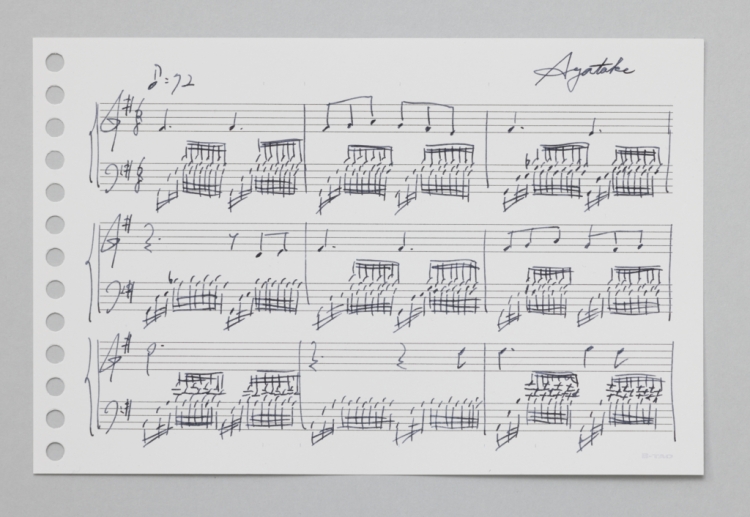 ♪=72
Ayatake